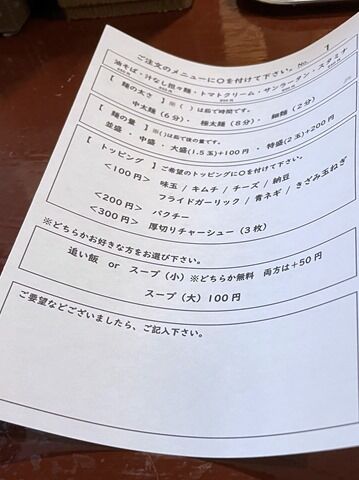 ご注文のメニューに〇を付けて下さい。 No. 1
油そば・汁なし担々麺・トマトクリーム・サンラータン・スタミナ
【 麺の太さ 】※（ ）は茹で時間です。
中太麺（6分）・ 極太麺（8分）・ 細麺（2分）
【 麺の量 】※()は茹で後の量です。
並盛 ・ 中盛 ・ 大盛(1.5玉)+100円 ・ 特盛(2玉)+200円
【 トッピング 】ご希望のトッピングに〇を付けて下さい。
<100円> 味玉 / キムチ / チーズ / 納豆
フライドガーリック / 青ネギ / きざみ玉ねぎ
<200円> パクチー
<300円> 厚切りチャーシュー（3枚）
※どちらかお好きな方をお選び下さい。
追い飯 or スープ（小）※どちらか無料 両方は+50円
スープ（大）100円
ご要望などございましたら、ご記入下さい。